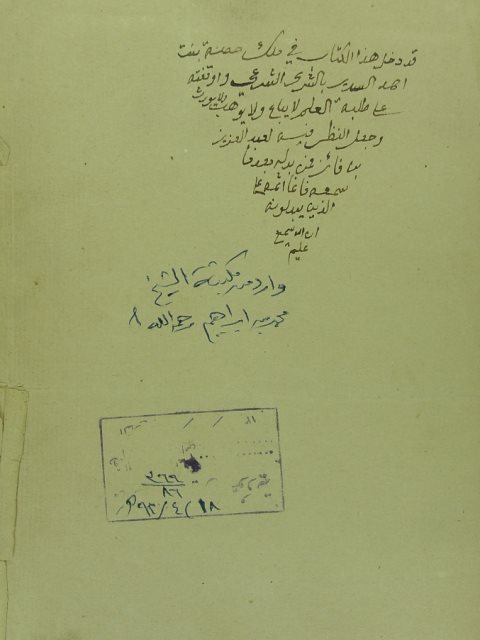 قد دخل هذا الكتاب في ملك حصة بنت
احمد السديري بالشرى الشرعي واوقفته
على طلبة العلم لا يباع ولا يوهب ولا يورث
وجعل النظر فيه لعبد العزيز
بن فائز فمن بدله بعدما
سمعه فانما اثمه على
الذين يبدلونه
ان الله سميع
عليم
وارد من مكتبة الشيخ
محمد بن ابراهيم رحمه الله
٨٦
١٨/٤/٩٢